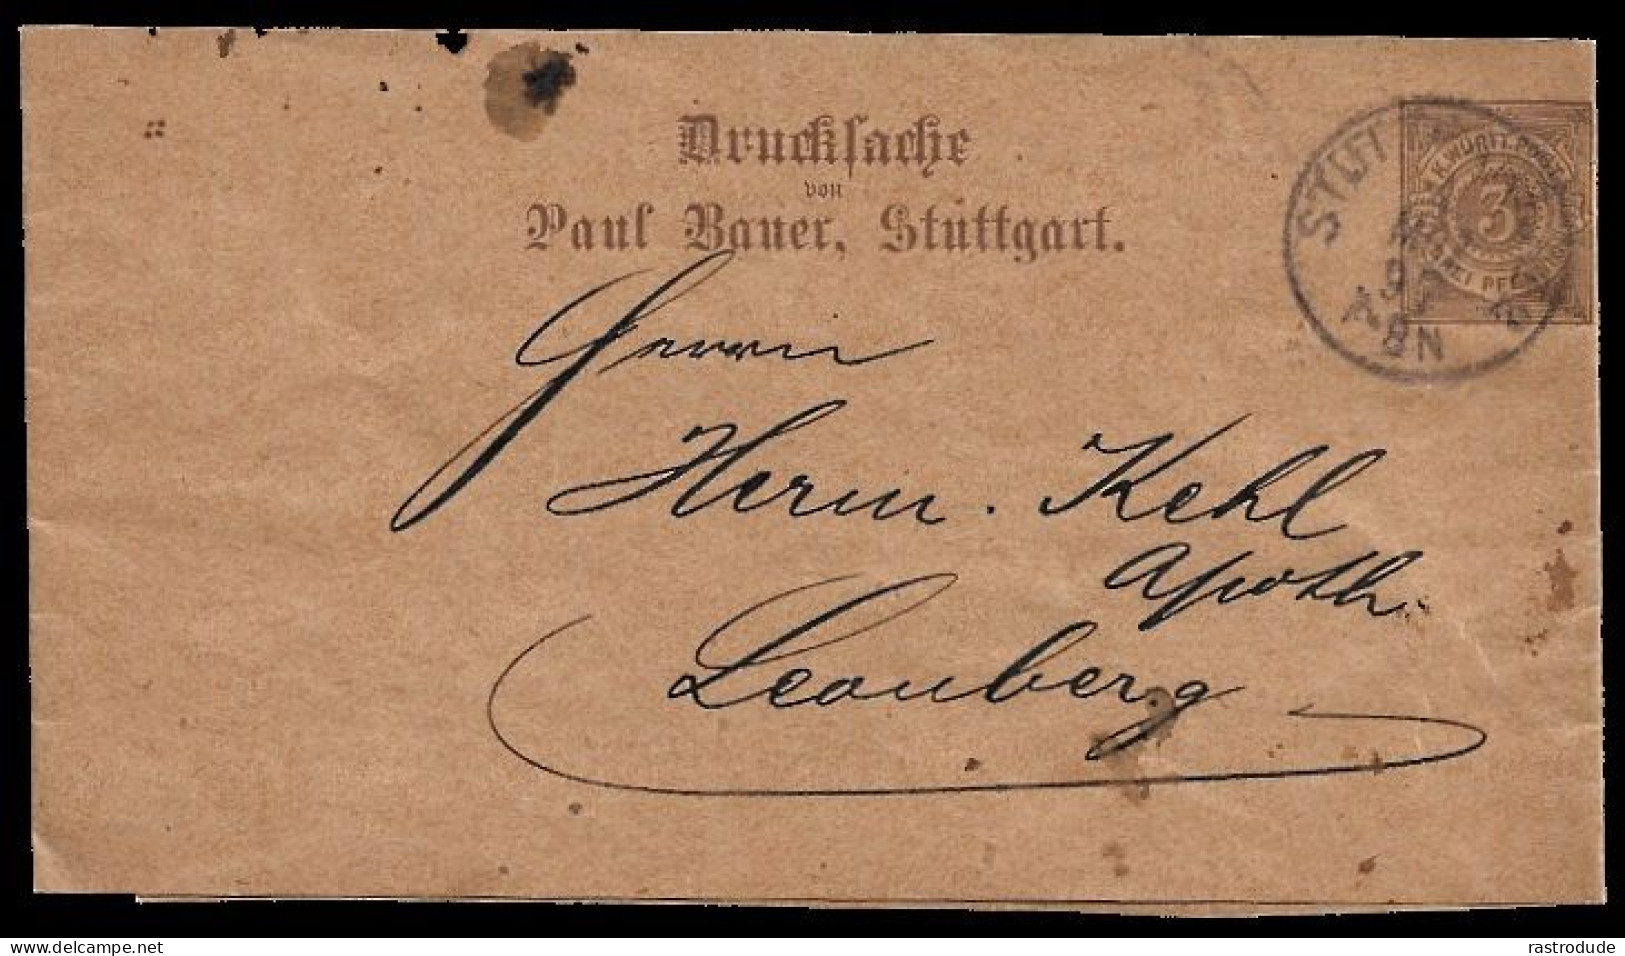 Drucksache
von
Paul Bauer, Stuttgart.
K. WÜRTT. POST
3
DREI PFENNIG
STUT
7-8N
Herrn
Herm. Kehl
Apoth.
Leonberg
delcampe.net
rastrodude